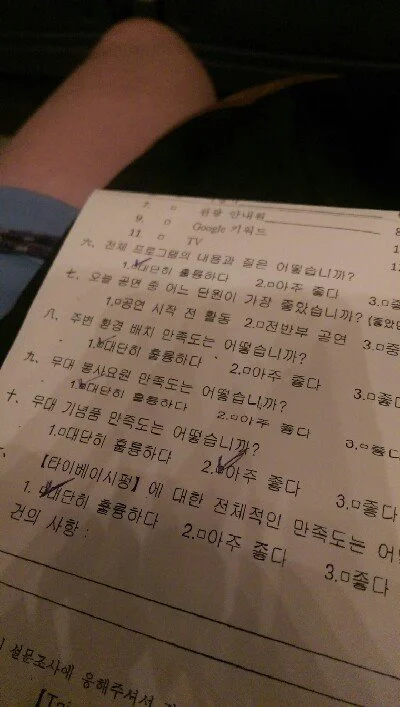 7. □ 관광 안내원
9. □ Google 키워드
11. □ TV
六、전체 프로그램의 내용과 질은 어떻습니까?
1.□대단히 훌륭하다 2.□아주 좋다 3.□좋
七、오늘 공연 중 어느 단원이 가장 좋았습니까? (좋았
1.□공연 시작 전 활동 2.□전반부 공연 3.□중
八、주변 환경 배치 만족도는 어떻습니까?
1.□대단히 훌륭하다 2.□아주 좋다 3.□좋
九、무대 봉사요원 만족도는 어떻습니까?
1.□대단히 훌륭하다 2.□아주 좋다 3.□좋
十、무대 기념품 만족도는 어떻습니까?
1.□대단히 훌륭하다 2.□아주 좋다 3.□좋다
【타이베이시평】에 대한 전체적인 만족도는 어
1.□대단히 훌륭하다 2.□아주 좋다 3.□좋다
건의 사항:
설문조사에 응해주셔서
【Tai